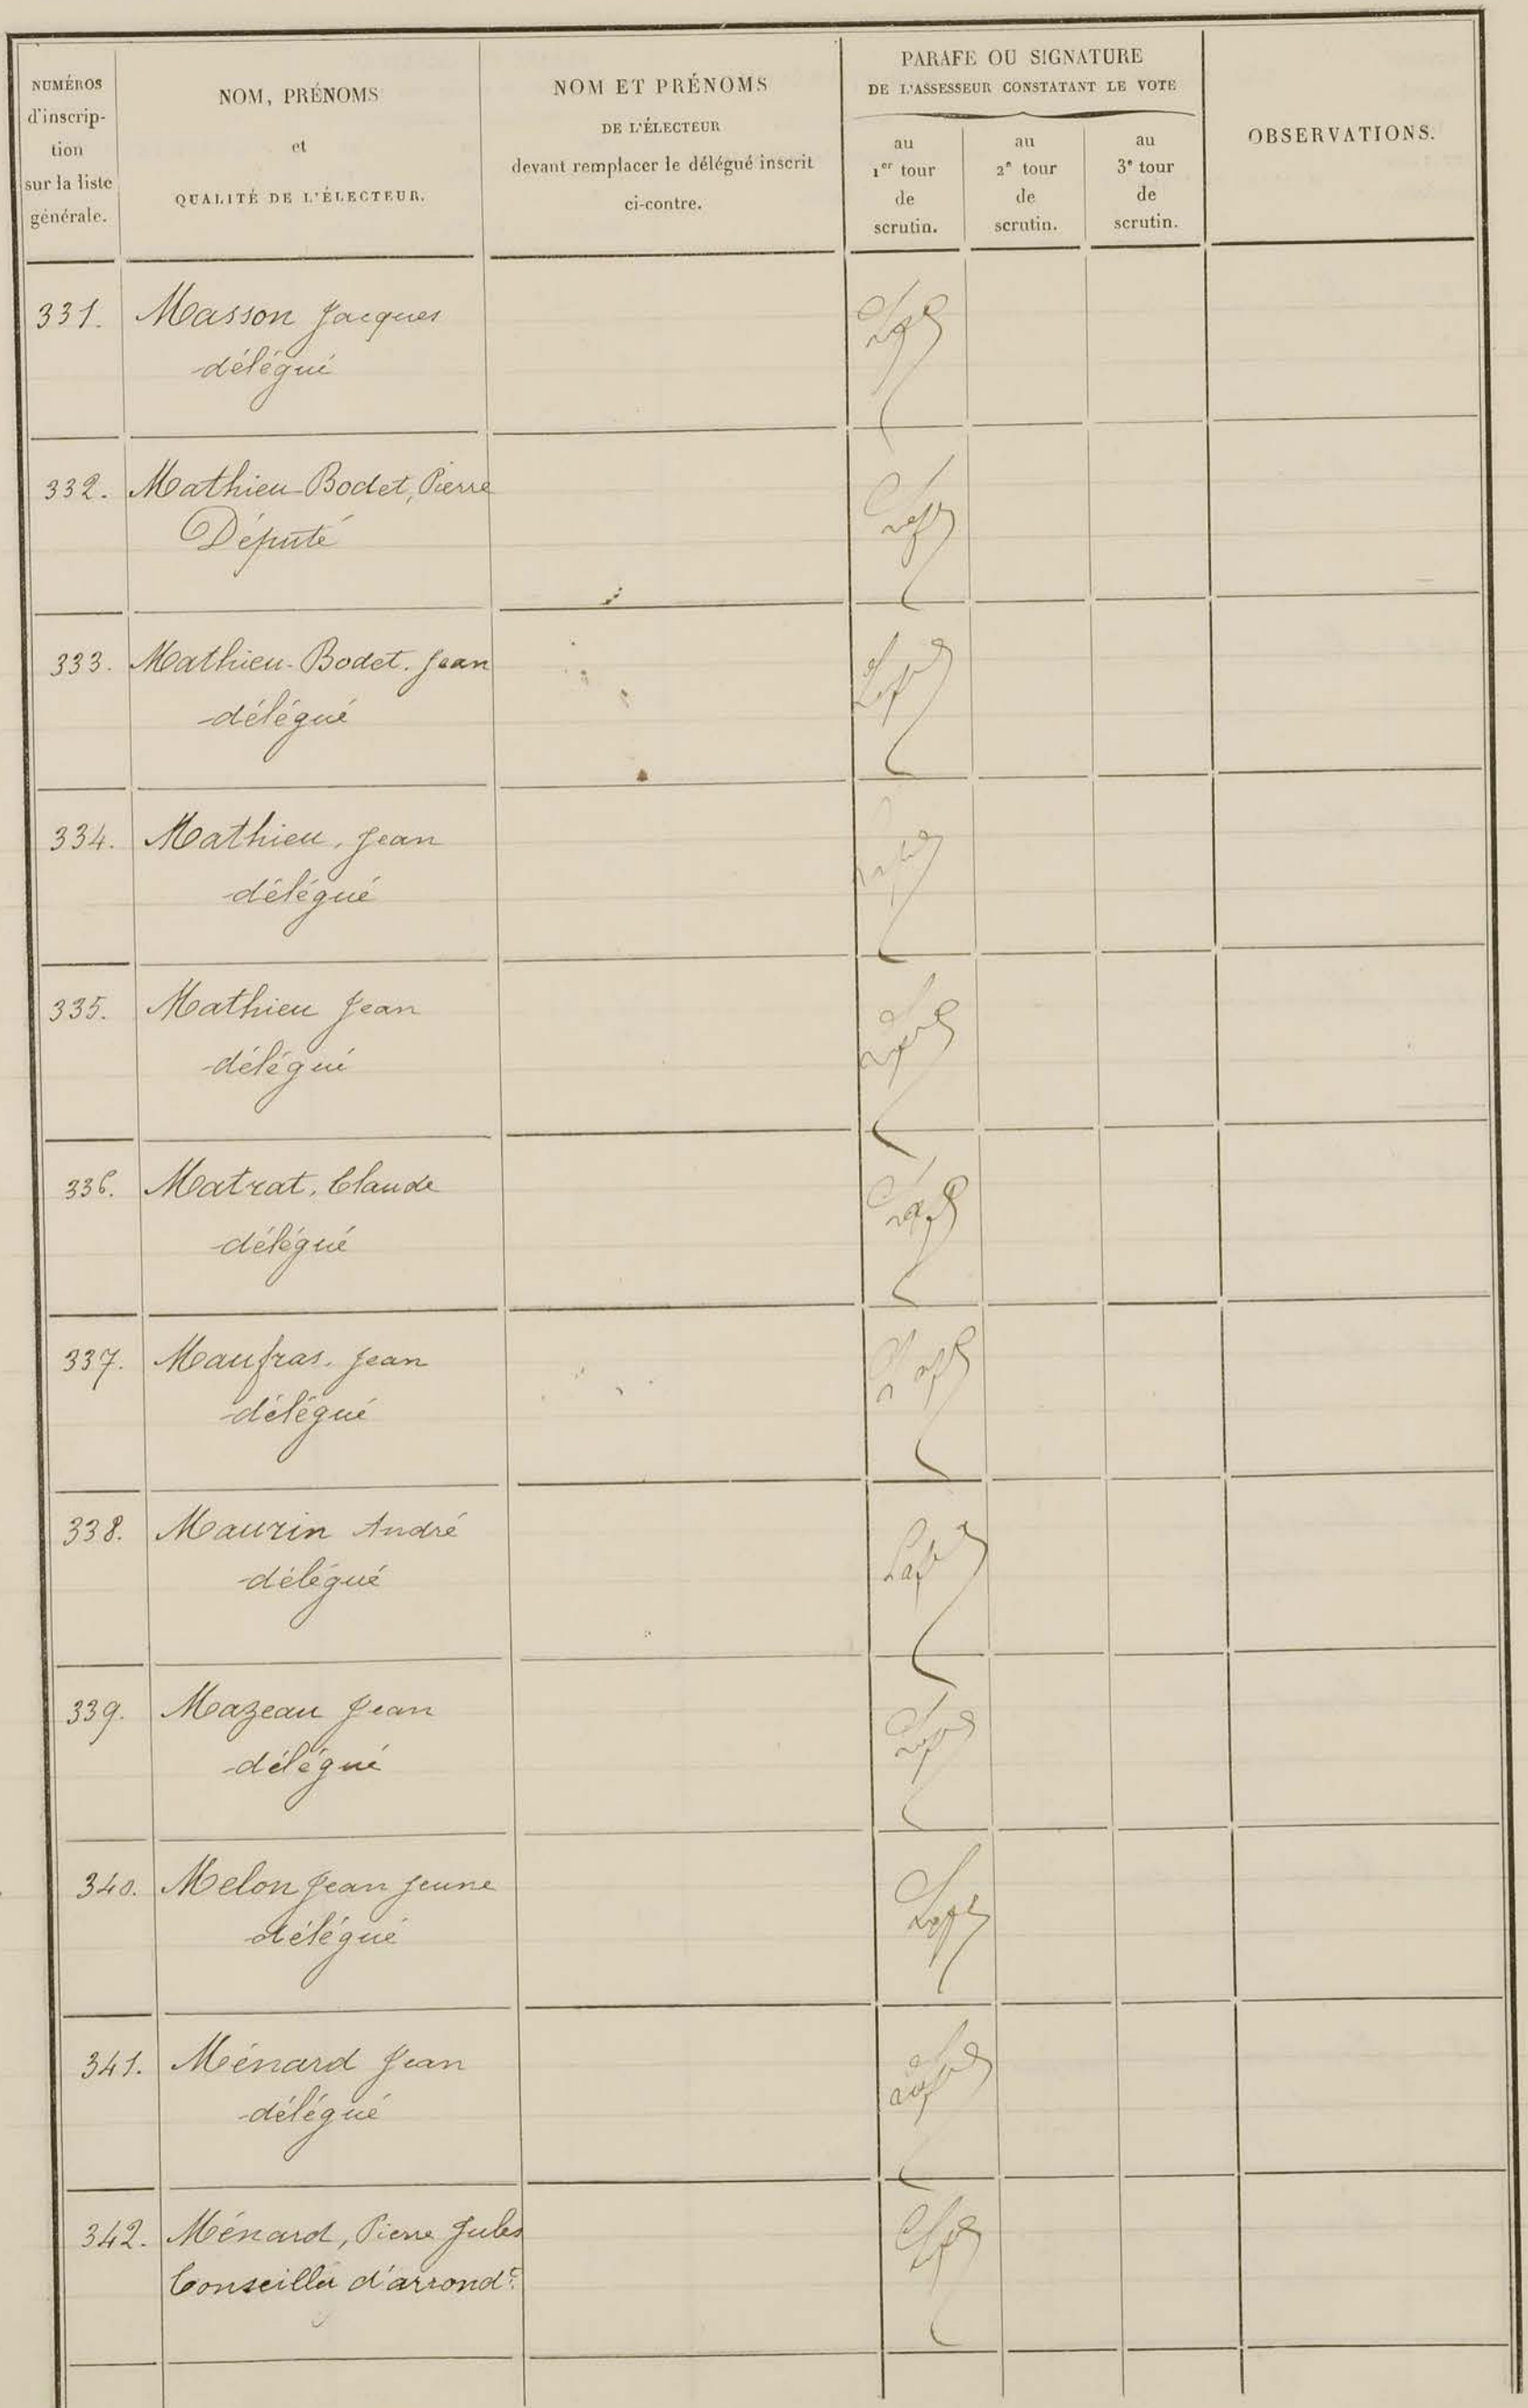 NUMÉROS
d'inscrip-
tion
sur la liste
générale.
NOM, PRÉNOMS
et
QUALITÉ DE L'ÉLECTEUR.
NOM ET PRÉNOMS
DE L'ÉLECTEUR
devant remplacer le délégué inscrit
ci-contre.
PARAFE OU SIGNATURE
DE L'ASSESSEUR CONSTATANT LE VOTE
au
1er tour
de
scrutin.
au
2e tour
de
scrutin.
au
3e tour
de
scrutin.
OBSERVATIONS.
331. Masson Jacques
délégué
332. Mathieu-Bodet, Pierre
Député
333. Mathieu-Bodet. Jean
délégué
334. Mathieu, Jean
délégué
335. Mathieu Jean
délégué
336. Matrat, Claude
délégué
337. Maufras. Jean
délégué
338. Maurin André
délégué
339. Mazeau Jean
délégué
340. Melon Jean jeune
délégué
341. Ménard Jean
délégué
342. Ménard, Pierre Jules
Conseiller d'arrondt.